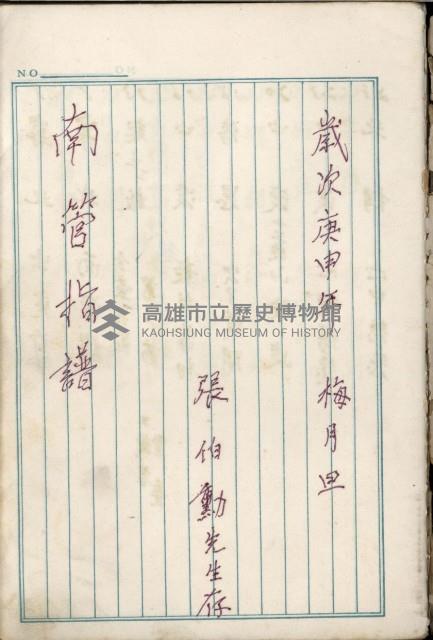 NO
歲次庚申年 梅月
張伯勳先生存
南管指譜
高雄市立歷史博物館
KAOHSIUNG MUSEUM OF HISTORY